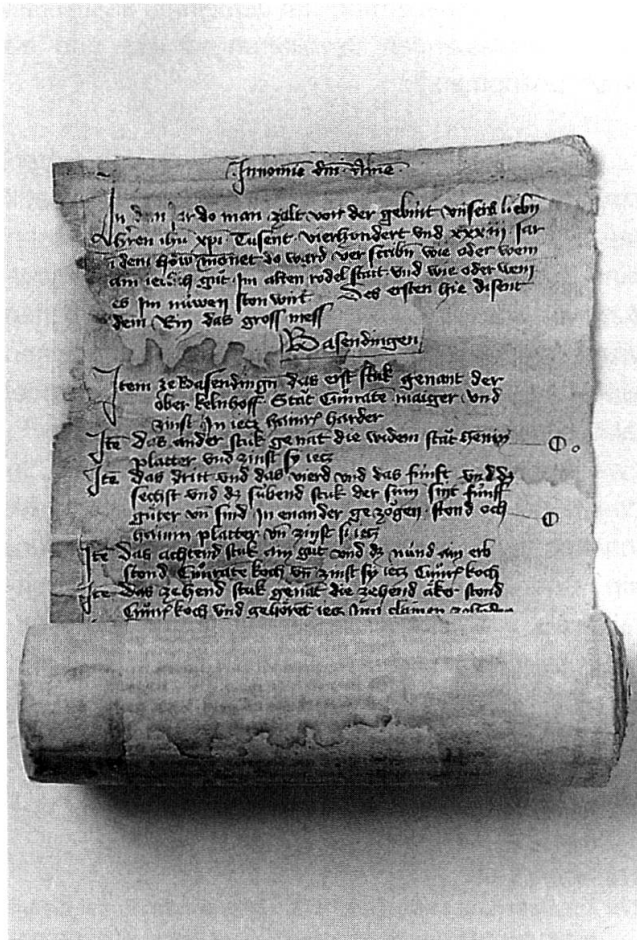 Jn nomine dni Amē
Jn dem Jar do man zalt von der gebürt vnsers liebn
hren ihu xpi Tusent vierhondert vnd xxxiij Jar
dem höw monet do ward ver scribn wie oder wem
ain iecklich güt Jm alten rodel stat vnd wie oder wem
es Jm nüwen ston wirt Des ersten hie disent
dem Rin das gross mess
Basendingen
Jtem ze Basendingn das erst stuk genant der
ober kelnhoff Stät Cünrate maiger vnd
zinst Jn iecz hainr harder
Jtē das ander stuk genāt die widem stät henin
platter vnd zinst sy iecz
Jtē das dritt vnd das vierd vnd das fünft vnd dz
sechst vnd dz sübend stuk der sint fünff
güter vn̄ sind Jn enander gezogen stond och
hainin platter vn̄ zinst si iecz
Jtē das achtend stuk ain güt vnd dz nünd ain erb
stond Cünrate koch vn̄ zinst sy iecz Cünr koch
Jtē das zehend stuk genāt die zehend aker stond
Cünr koch vnd gehöret iecz